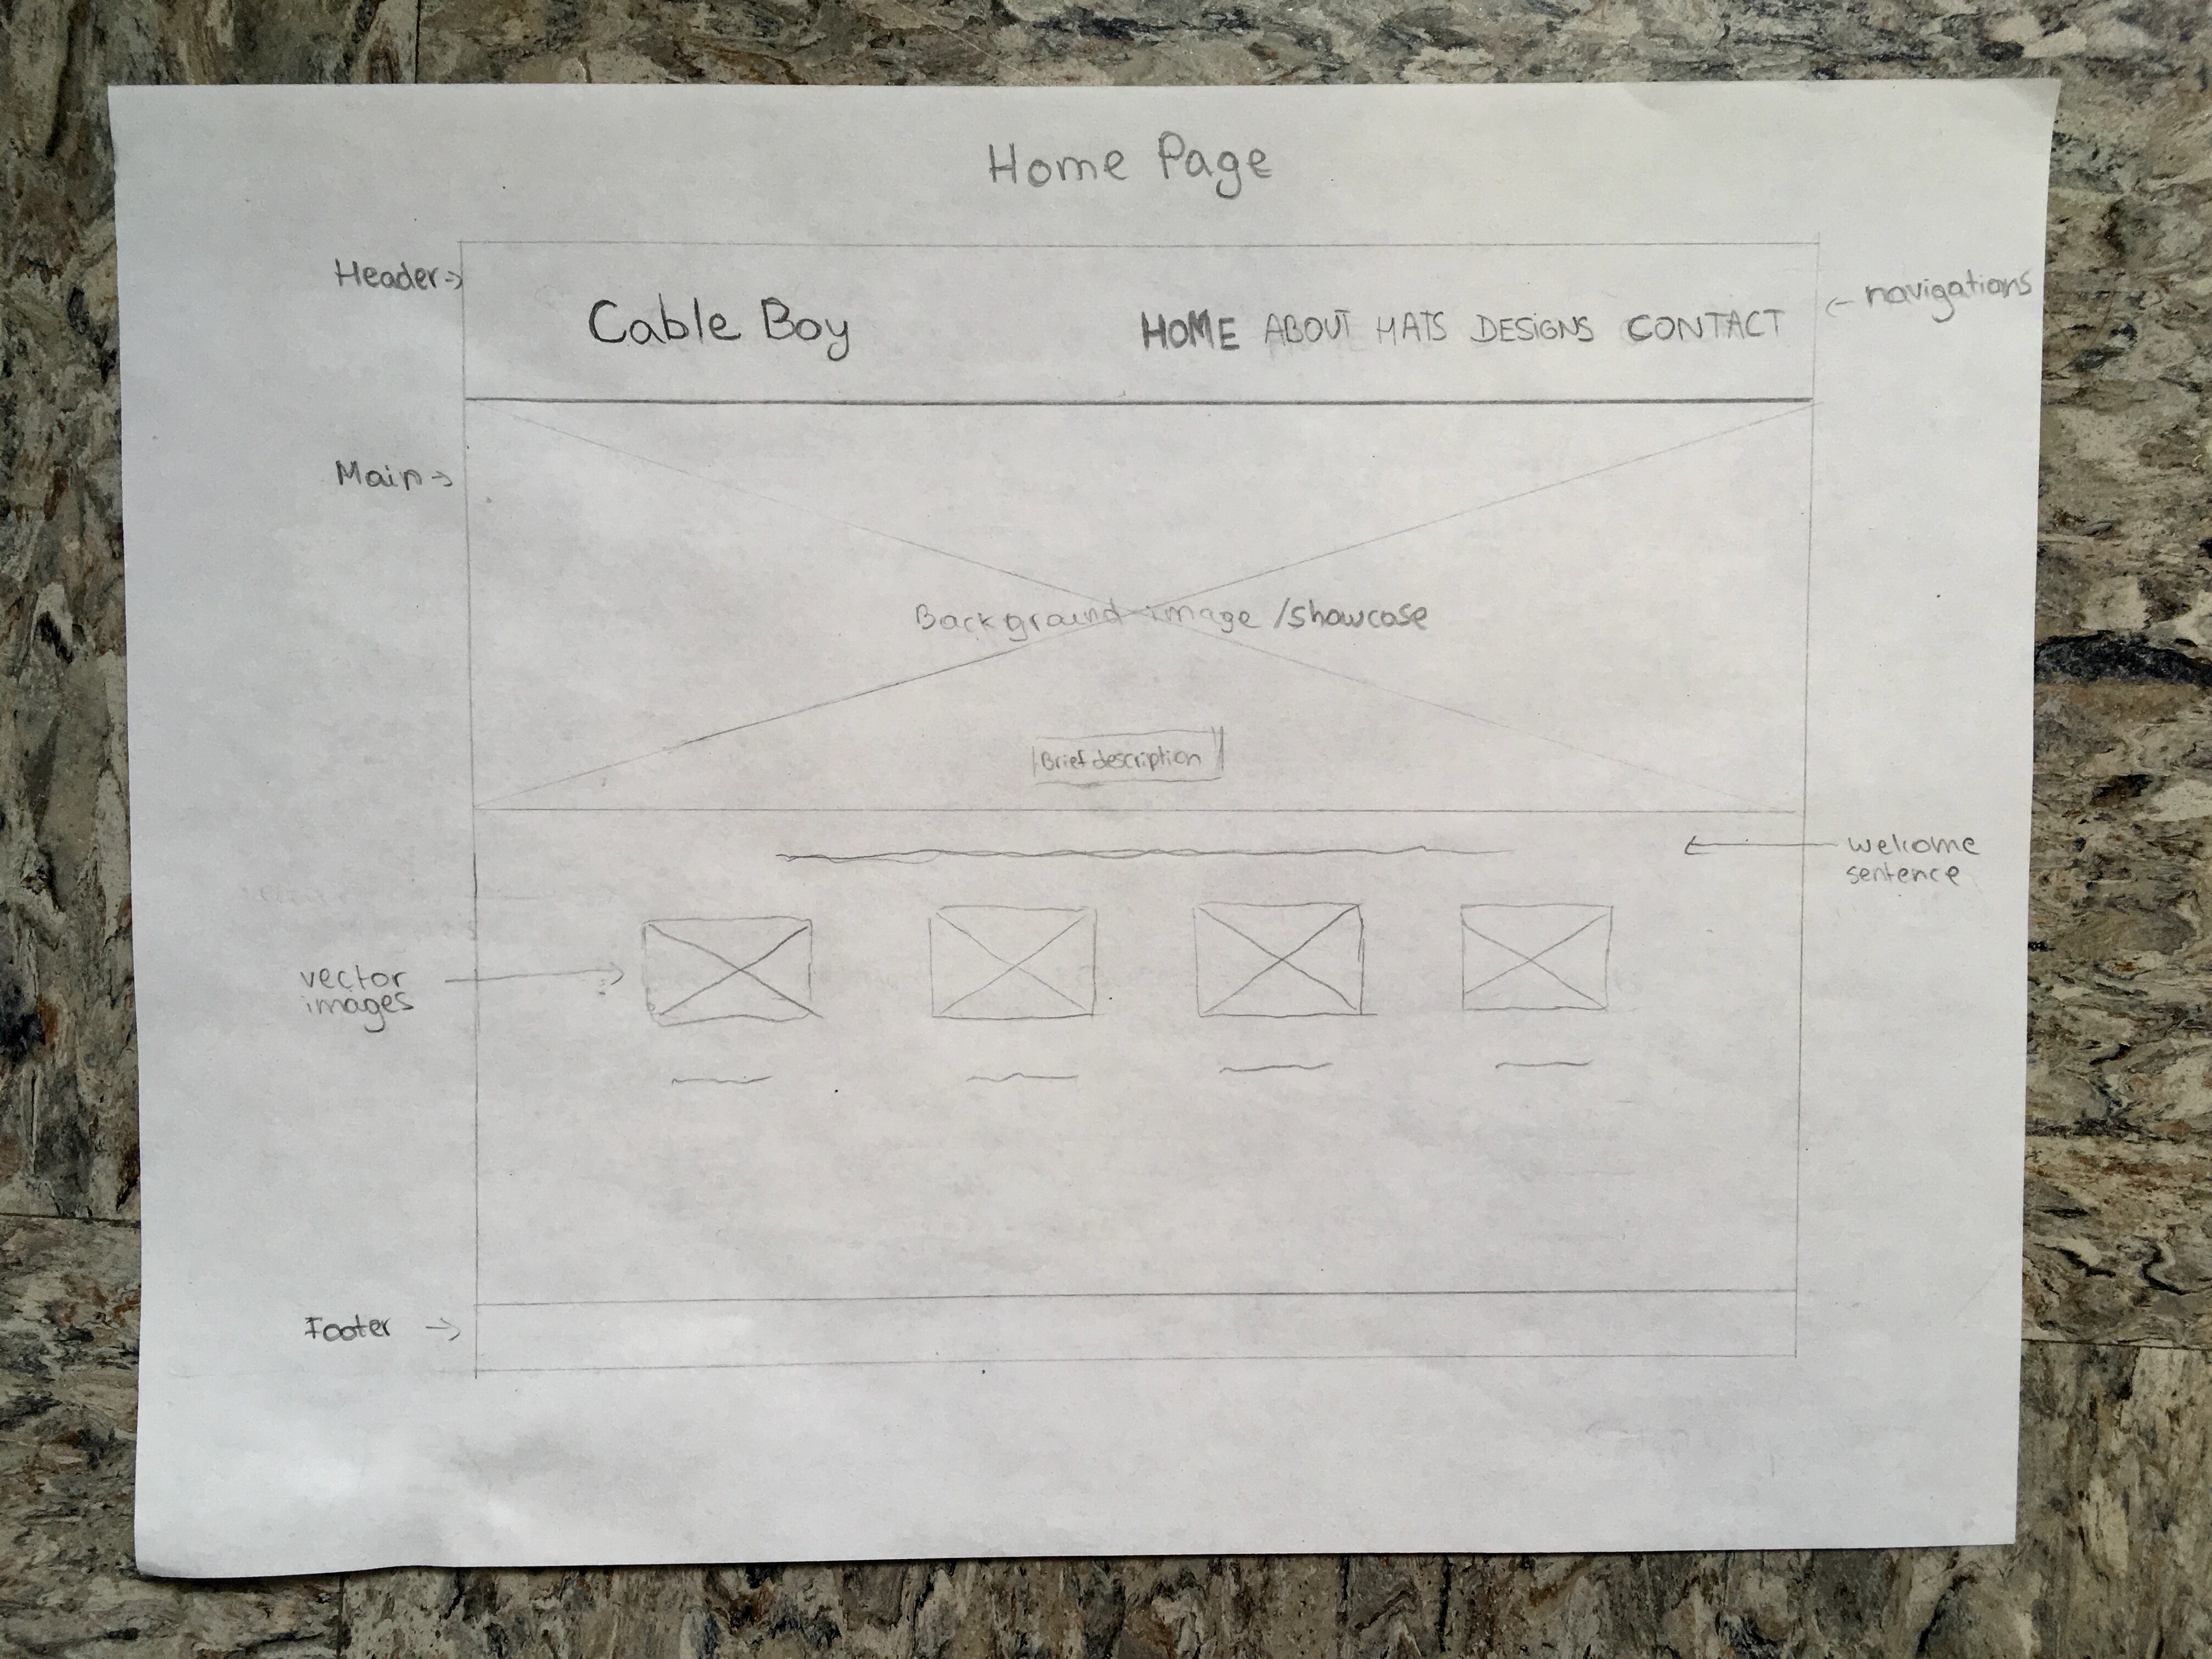 Home Page
Header
Cable Boy
HOME ABOUT MATS DESIGNS CONTACT
navigations
Main
Background image /showcase
Brief description
welcome
sentence
vector
images
Footer